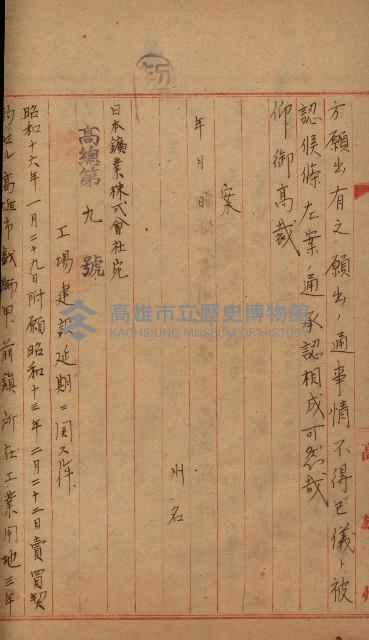 方願出有之願出ノ通事情不得已儀ト被
認候條左案ノ通承認相成可然哉
仰御高裁
案
年月日
州名
日本鑛業株式會社宛
高總第九號
工場建設延期ニ関スル件
昭和十六年一月二十九日附願昭和十三年二月二十二日賣買契
約セル高雄市戲獅甲、前鎮所在工業用地三年
高雄市立歷史博物館
KAOHSIUNG MUSEUM OF HISTORY
高雄州